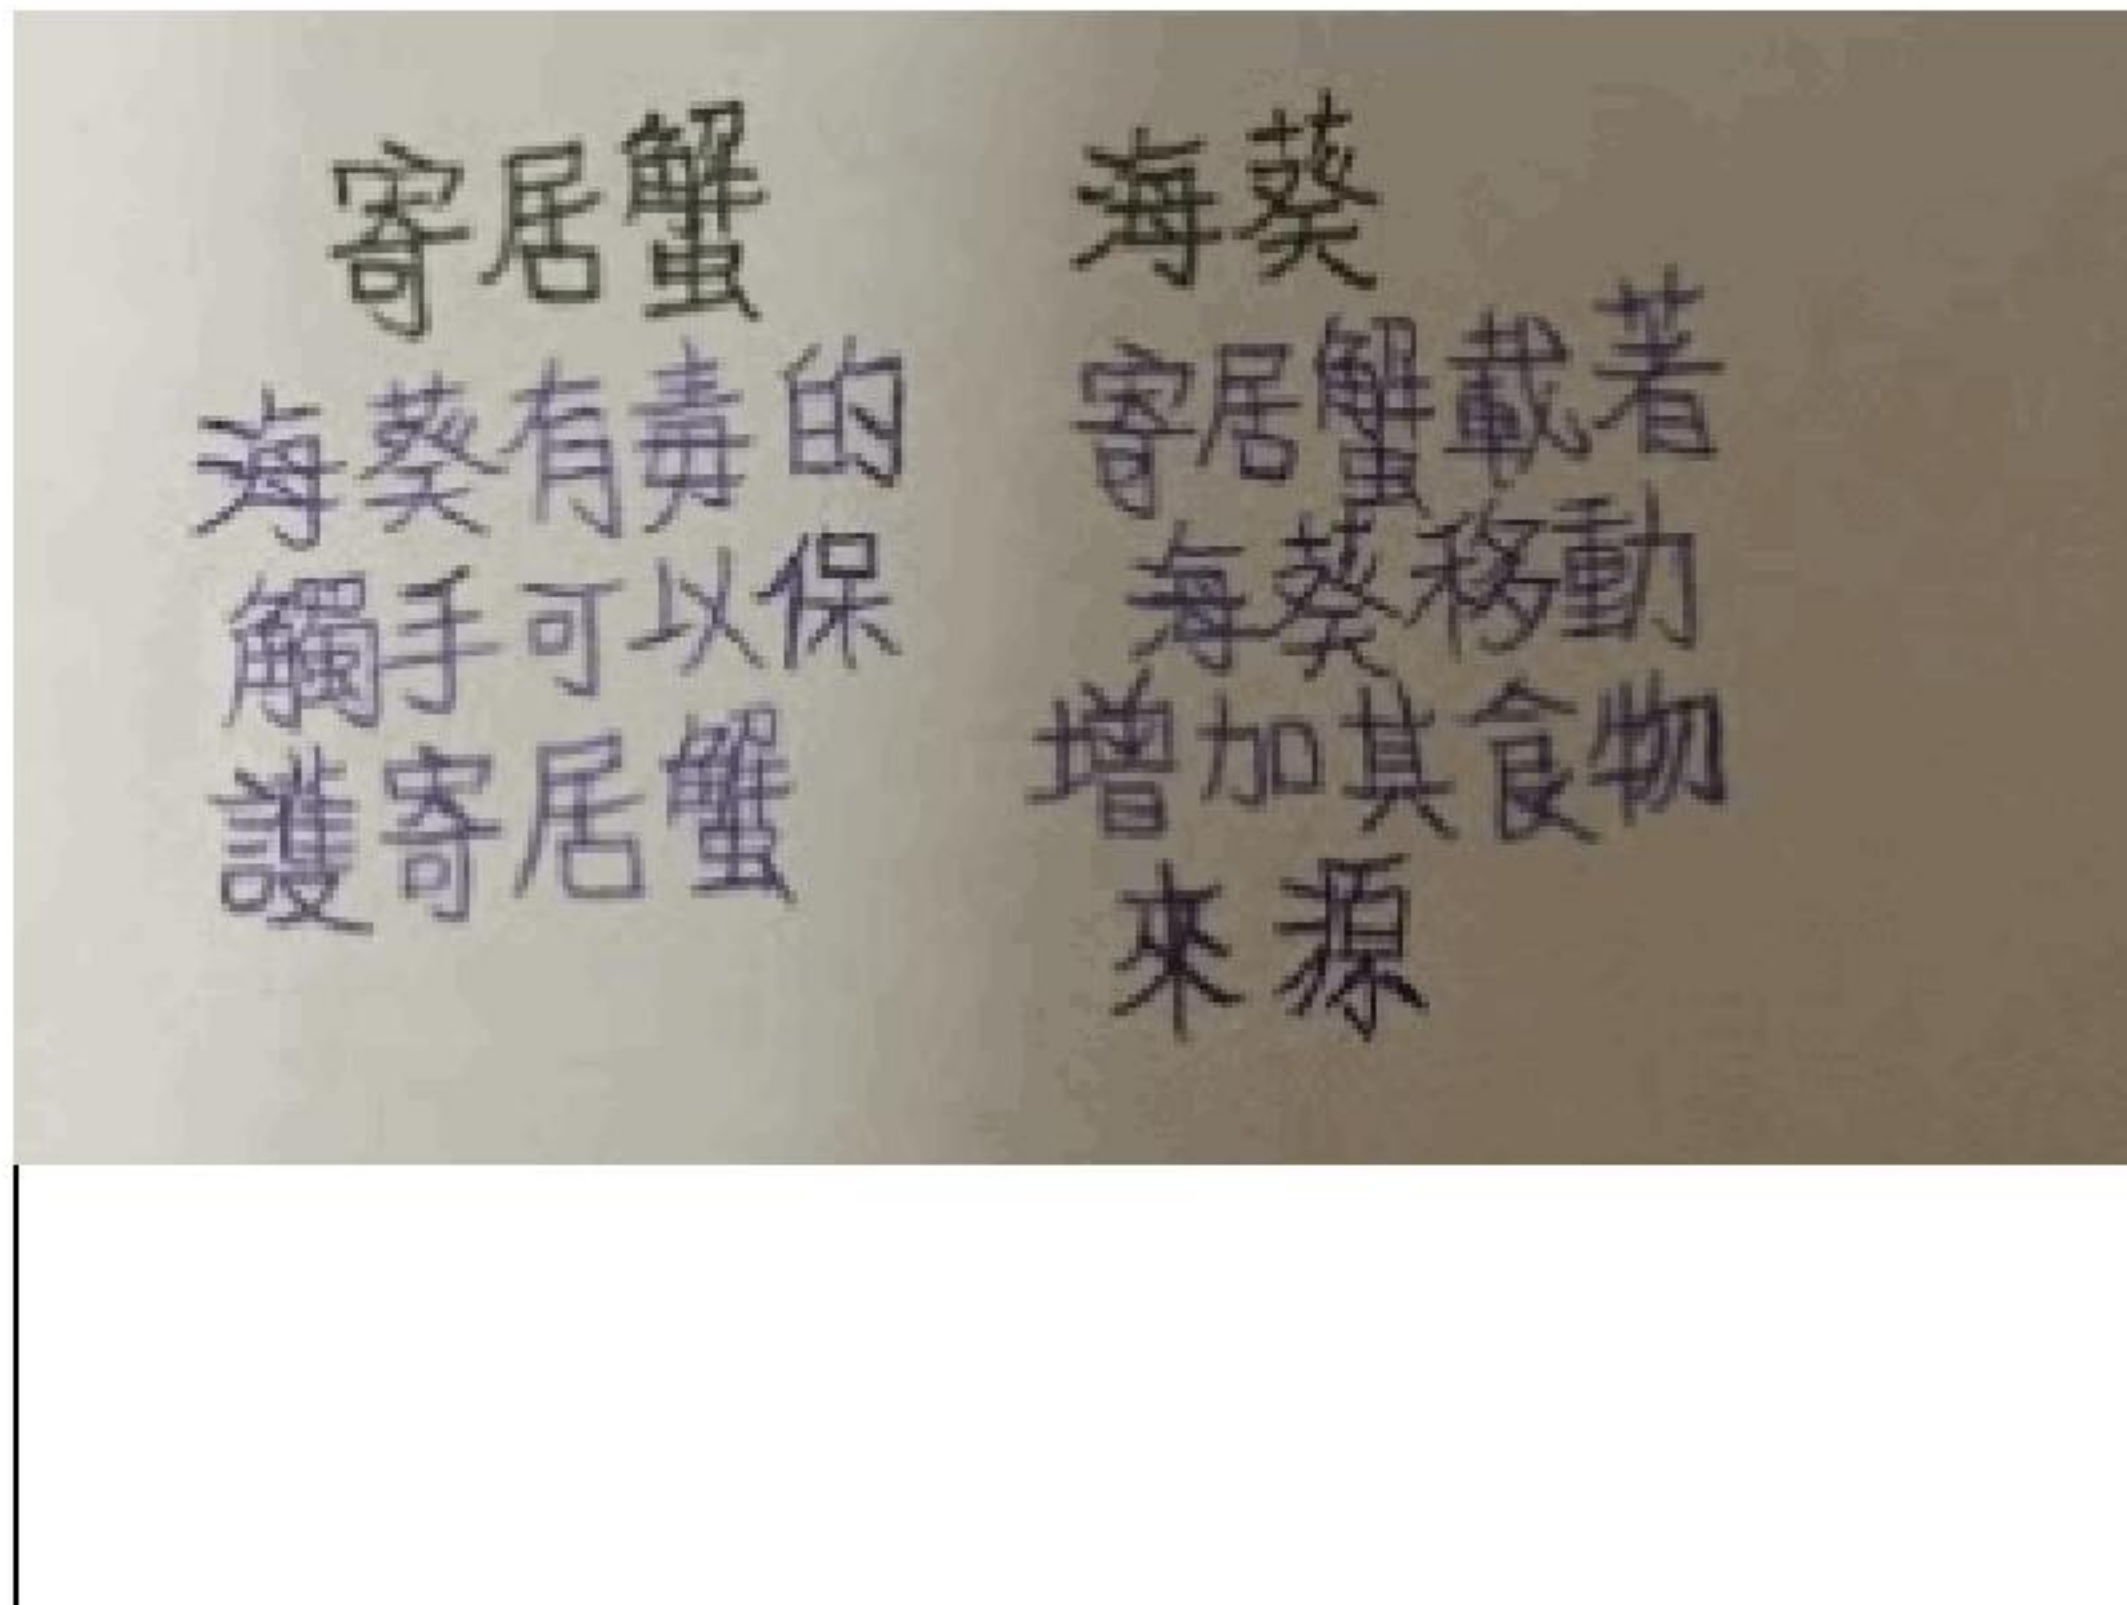 寄居蟹
海葵有毒的
觸手可以保
護寄居蟹
海葵
寄居蟹載著
海葵移動
增加其食物
來源